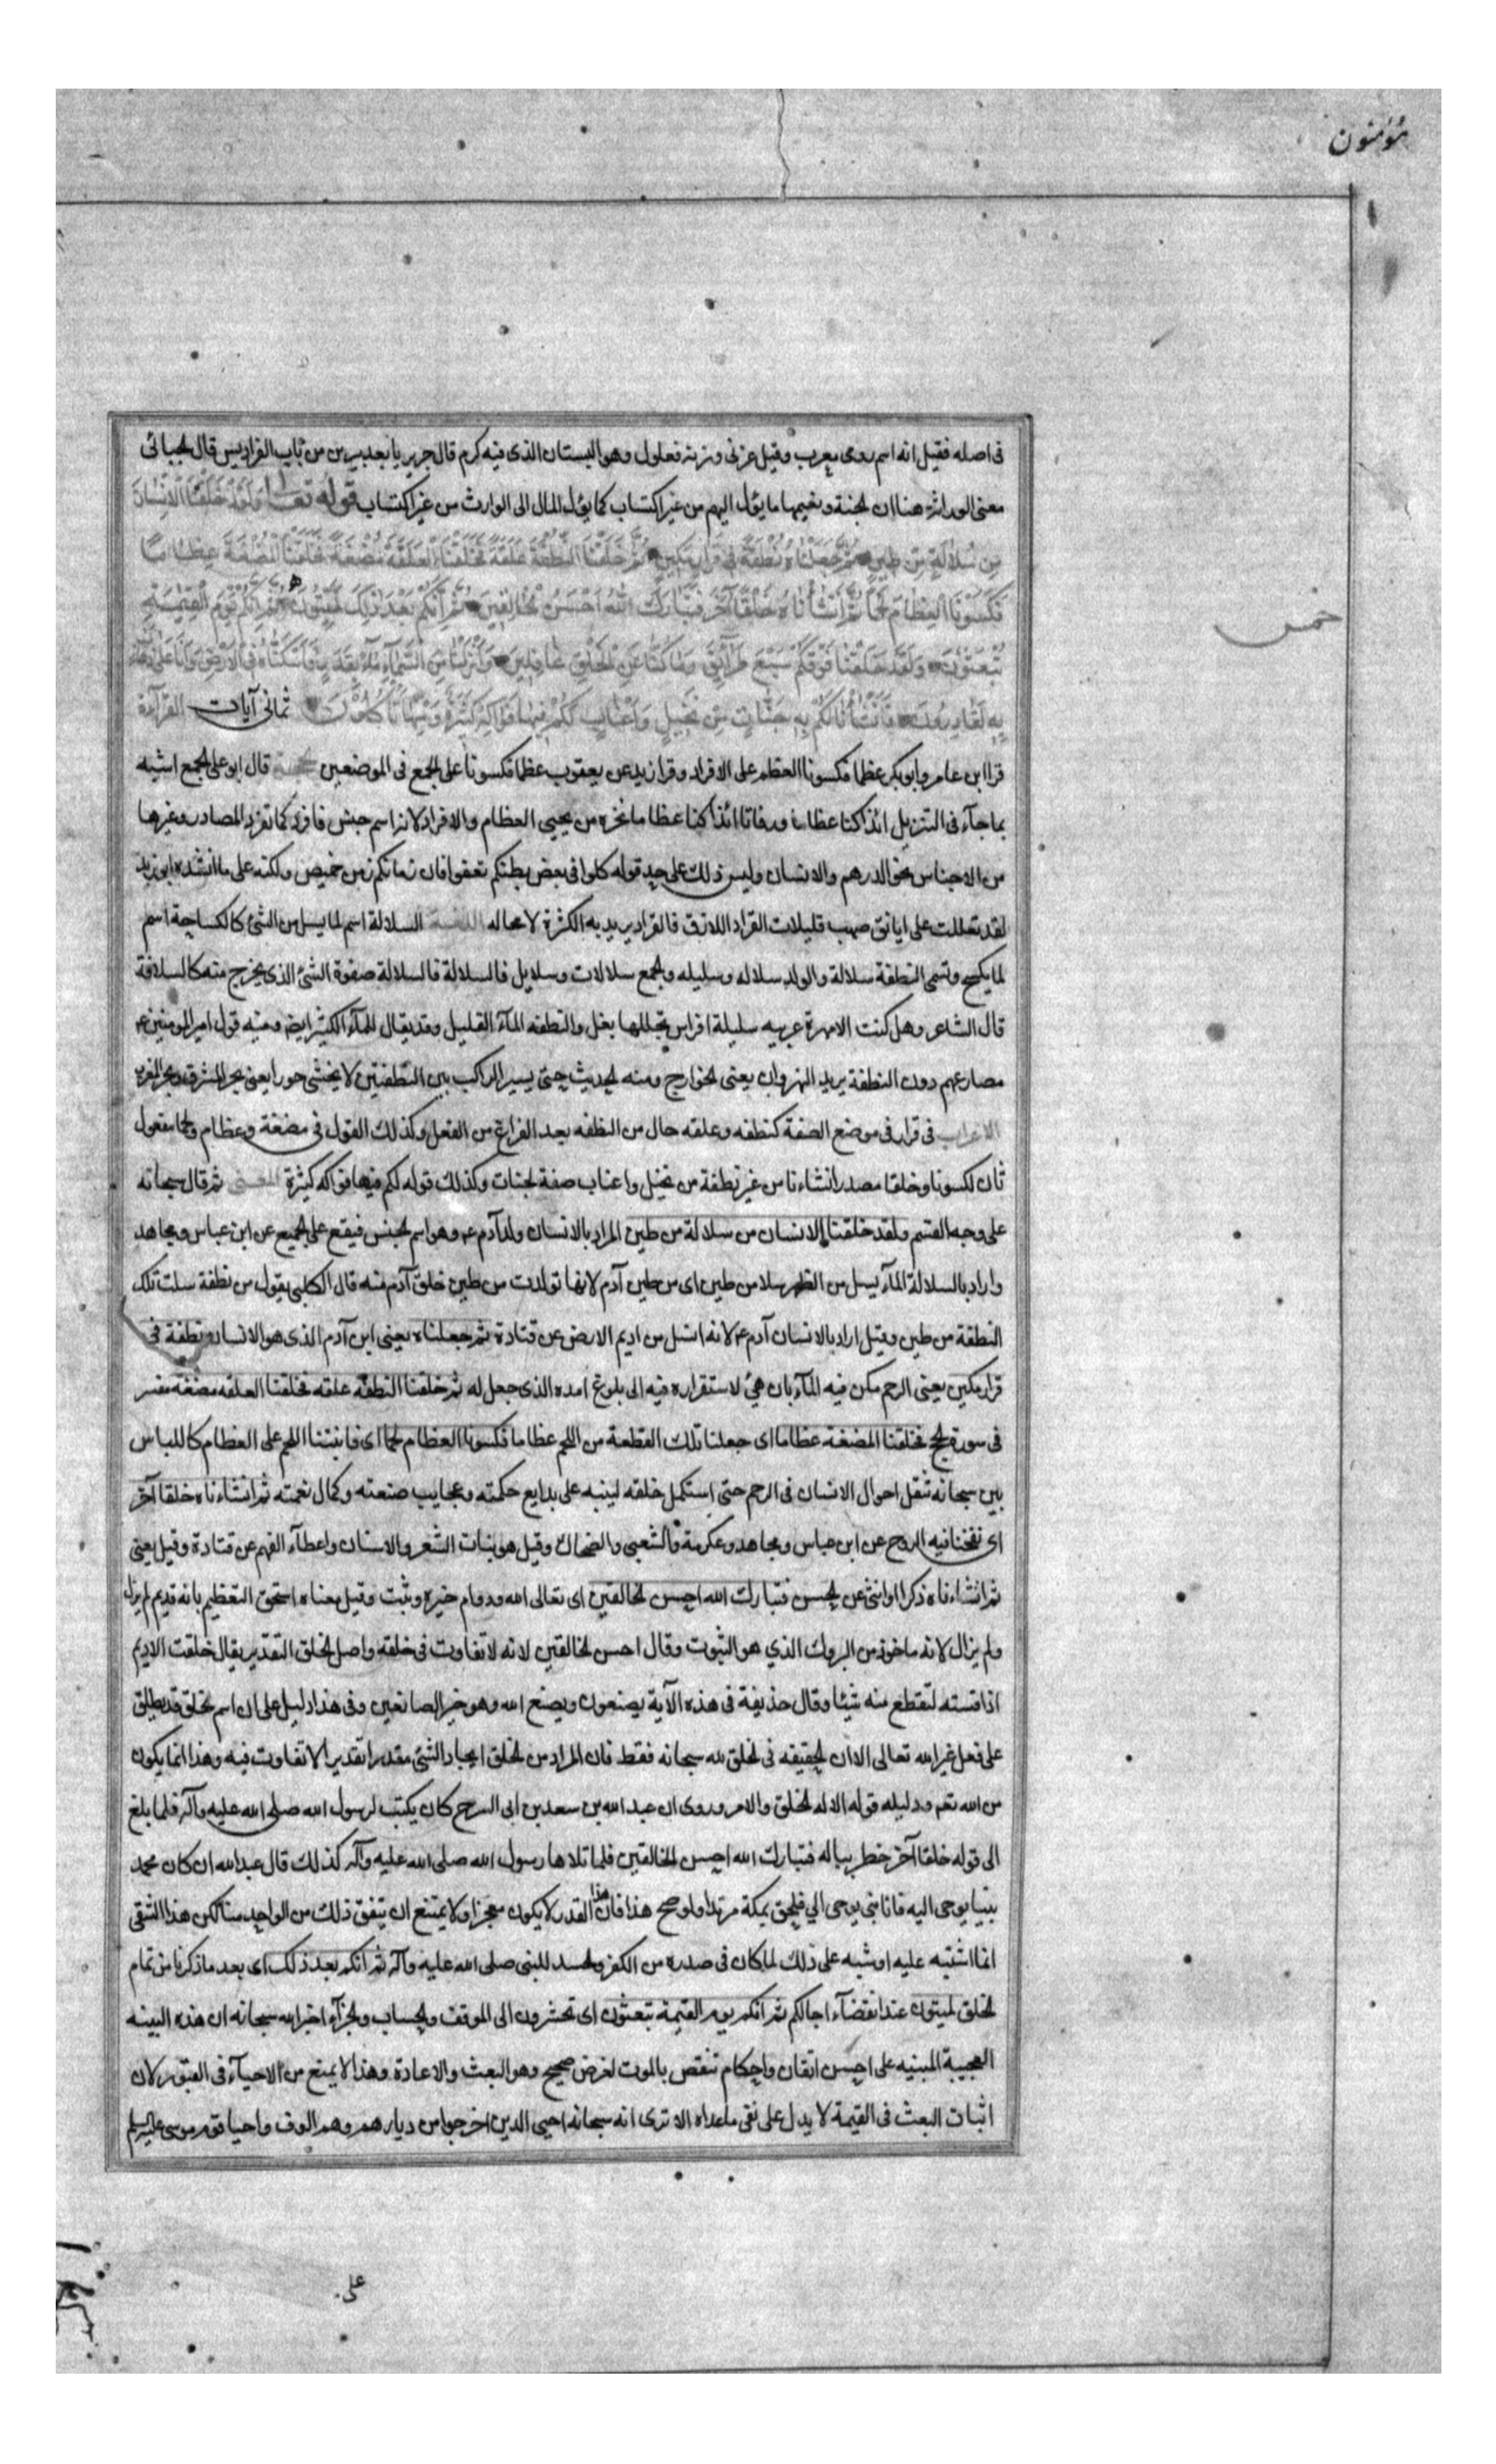 مؤمنون
فى اصله فقيل انه اسم رومى معرب وقيل عربى وزنه فعلول وهو البستان الذى فيه كرم قال جرير يا بعد يبرين من باب الفراديس قال الجبائى
معنى الوراثة هنا ان الجنة ونعيمها ما يؤل اليهم من غير اكتساب كما يؤل المال الى الوارث من غير اكتساب قوله تعالى وَلَقَدْ خَلَقْنَا الْاِنْسَانَ
مِن سُلَالَةٍ مِّن طِينٍ ثُمَّ جَعَلْنَاهُ نُطْفَةً فِى قَرَارٍ مَكِينٍ ثُمَّ خَلَقْنَا النُّطْفَةَ عَلَقَةً فَخَلَقْنَا الْعَلَقَةَ مُضْغَةً فَخَلَقْنَا الْمُضْغَةَ عِظَامًا
فَكَسَوْنَا الْعِظَامَ لَحْمًا ثُمَّ اَنْشَأْنَاهُ خَلْقًا آخَرَ فَتَبَارَكَ اللهُ اَحْسَنُ الْخَالِقِينَ ثُمَّ اِنَّكُمْ بَعْدَ ذٰلِكَ لَمَيِّتُونَ ثُمَّ اِنَّكُمْ يَوْمَ الْقِيٰمَةِ
خمس
تُبْعَثُونَ وَلَقَدْ خَلَقْنَا فَوْقَكُمْ سَبْعَ طَرَآئِقَ وَمَا كُنَّا عَنِ الْخَلْقِ غَافِلِينَ وَاَنْزَلْنَا مِنَ السَّمَآءِ مَآءً بِقَدَرٍ فَاَسْكَنَّاهُ فِى الْاَرْضِ وَاِنَّا عَلَى ذَهَابٍ
بِهِ لَقَادِرُونَ فَاَنْشَأْنَا لَكُمْ بِهِ جَنَّاتٍ مِن نَخِيلٍ وَاَعْنَابٍ لَكُمْ فِيهَا فَوَاكِهُ كَثِيرَةٌ وَمِنْهَا تَأْكُلُونَ ثمانى آيات القراءة
قرا ابن عامر وابو بكر عظما فكسونا العظم على الافراد وقرا زيد عن يعقوب عظما فكسونا على الجمع فى الموضعين الحجة قال ابو على الجمع اشبه
بما جآء فى التنزيل ائذا كنا عظاما ورفاتا ائذا كنا عظاما نخرة من يحيى العظام والافراد لانه اسم جنس فافرد كما تفرد المصادر وغيرها
من الاجناس نحو الدرهم والانسان وليس ذلك على حد قوله كلوا فى بعض بطنكم تعفوا فان زمانكم زمن خميص ولكنه على ما انشده ابو زيد
لقد تعللت على ايانق صهب قليلات القراد اللازق فالقراد يريد به الكثرة لا محاله اللغة السلالة اسم لما يسل من الشئ كالكساحة اسم
لما يكسح وتسمى النطفة سلالة والولد سلاله وسليله والجمع سلالات وسلايل فالسلالة فالسلالة صفوة الشئ الذى يخرج منه كالسلافة
قال الشاعر وهل كنت الا مهرة عربيه سليلة افراس تجللها بغل والنطفه المآء القليل وقد يقال للمآء الكثير ايضا ومنه قول امير المومنين ع
مصارعهم دون النطفة يريد النهروان يعنى الخوارج ومنه الحديث حتى يسير الراكب بين النطفتين لا يخشى جورا يعنى بحر المشرق وبحر المغرب
الاعراب فى قرار فى موضع الصفة كنطفه وعلقه حال من النطفه بعد الفراغ من الفعل وكذلك القول فى مضغة وعظام ولحما مفعول
ثان لكسونا وخلقا مصدر انشاءنا من غير نطفة من نخيل واعناب صفة لجنات وكذلك قوله لكم فيها فواكه كثيرة المعنى ثم قال سبحانه
على وجه القسم ولقد خلقنا الانسان من سلالة من طين المراد بالانسان ولد آدم ع وهو اسم الجنس فيقع على الجميع عن ابن عباس ومجاهد
واراد بالسلالة المآء يسل من الظهر سلا من طين اى من طين آدم لانها تولدت من طين خلق آدم منه قال الكلبى يقول من نطفة سلت تلك
النطفة من طين وقيل اراد بالانسان آدم ع لانه استل من اديم الارض عن قتادة ثم جعلناه يعنى ابن آدم الذى هو الانسان نطفة فى
قرار مكين يعنى الرحم مكن فيه المآء بان هيئ لاستقراره فيه الى بلوغ امده الذى جعل له ثم خلقنا النطفة علقه فخلقنا العلقه مضغه مفسر
فى سورة الحج فخلقنا المضغة عظاما اى جعلنا تلك القطعة من اللحم عظاما فكسونا العظام لحما اى فانبتنا اللحم على العظام كاللباس
بين سبحانه تنقل احوال الانسان فى الرحم حتى استكمل خلقه لينبه على بدايع حكمته وعجايب صنعته وكمال نعمته ثم انشاءناه خلقا آخر
اى نفخنا فيه الروح عن ابن عباس ومجاهد وعكرمة والشعبى والضحاك وقيل هو بنات الشعر والاسنان واعطآء الفهم عن قتادة وقيل يعنى
ثم انشاءناه ذكرا او انثى عن الحسن فتبارك الله احسن الخالقين اى تعالى الله ودوام خيره وثبت وقيل معناه استحق التعظيم بانه قديم لم يزل
ولم يزال لانه ماخوذ من البروك الذي هو الثبوت وقال احسن الخالقين لانه لا تفاوت فى خلقه واصل الخلق التقدير يقال خلقت الاديم
اذا قسته لتقطع منه شيئا وقال حذيفة فى هذه الآية يصنعون ويصنع الله وهو خير الصانعين وفى هذا دليل على ان اسم الخلق قد يطلق
على فعل غير الله تعالى الا ان الحقيقه فى الخلق لله سبحانه فقط فان المراد من الخلق ايجاد الشئ مقدرا تقديرا لا تفاوت فيه وهذا انما يكون
من الله تعم ودليله قوله الا له الخلق والامر وروى ان عبد الله بن سعد بن ابى السرح كان يكتب لرسول الله صلى الله عليه وآله فلما بلغ
الى قوله خلقا آخر خطر بباله فتبارك الله احسن الخالقين فلما تلاها رسول الله صلى الله عليه وآله كذلك قال عبد الله ان كان محمد
نبيا يوحى اليه فانا نبى يوحى الي فلحق بمكة مرتدا ولو صح هذا فان هذا القدر لا يكون معجزا ولا يمتنع ان يتفق ذلك من الواحد منا لكن هذا الشقى
انما اشتبه عليه او شبه على ذلك لما كان فى صدره من الكفر والحسد للنبى صلى الله عليه وآله ثم انكم بعد ذلك اى بعد ما ذكرنا من تمام
الخلق لميتون عند انقضآء اجالكم ثم انكم يوم القيمة تبعثون اى تحشرون الى الموقف والحساب والجزآء اخبر الله سبحانه ان هذه البينه
العجيبة المبنيه على احسن اتقان واحكام تنقص بالموت لغرض صحيح وهو البعث والاعادة وهذا لا يمنع من الاحيآء فى القبور لان
اثبات البعث فى القيمة لا يدل على نفى ماعداه الا ترى انه سبحانه احيى الذين اخرجوا من ديارهم وهم الوف واحيا قوم موسى عليه السلم
على